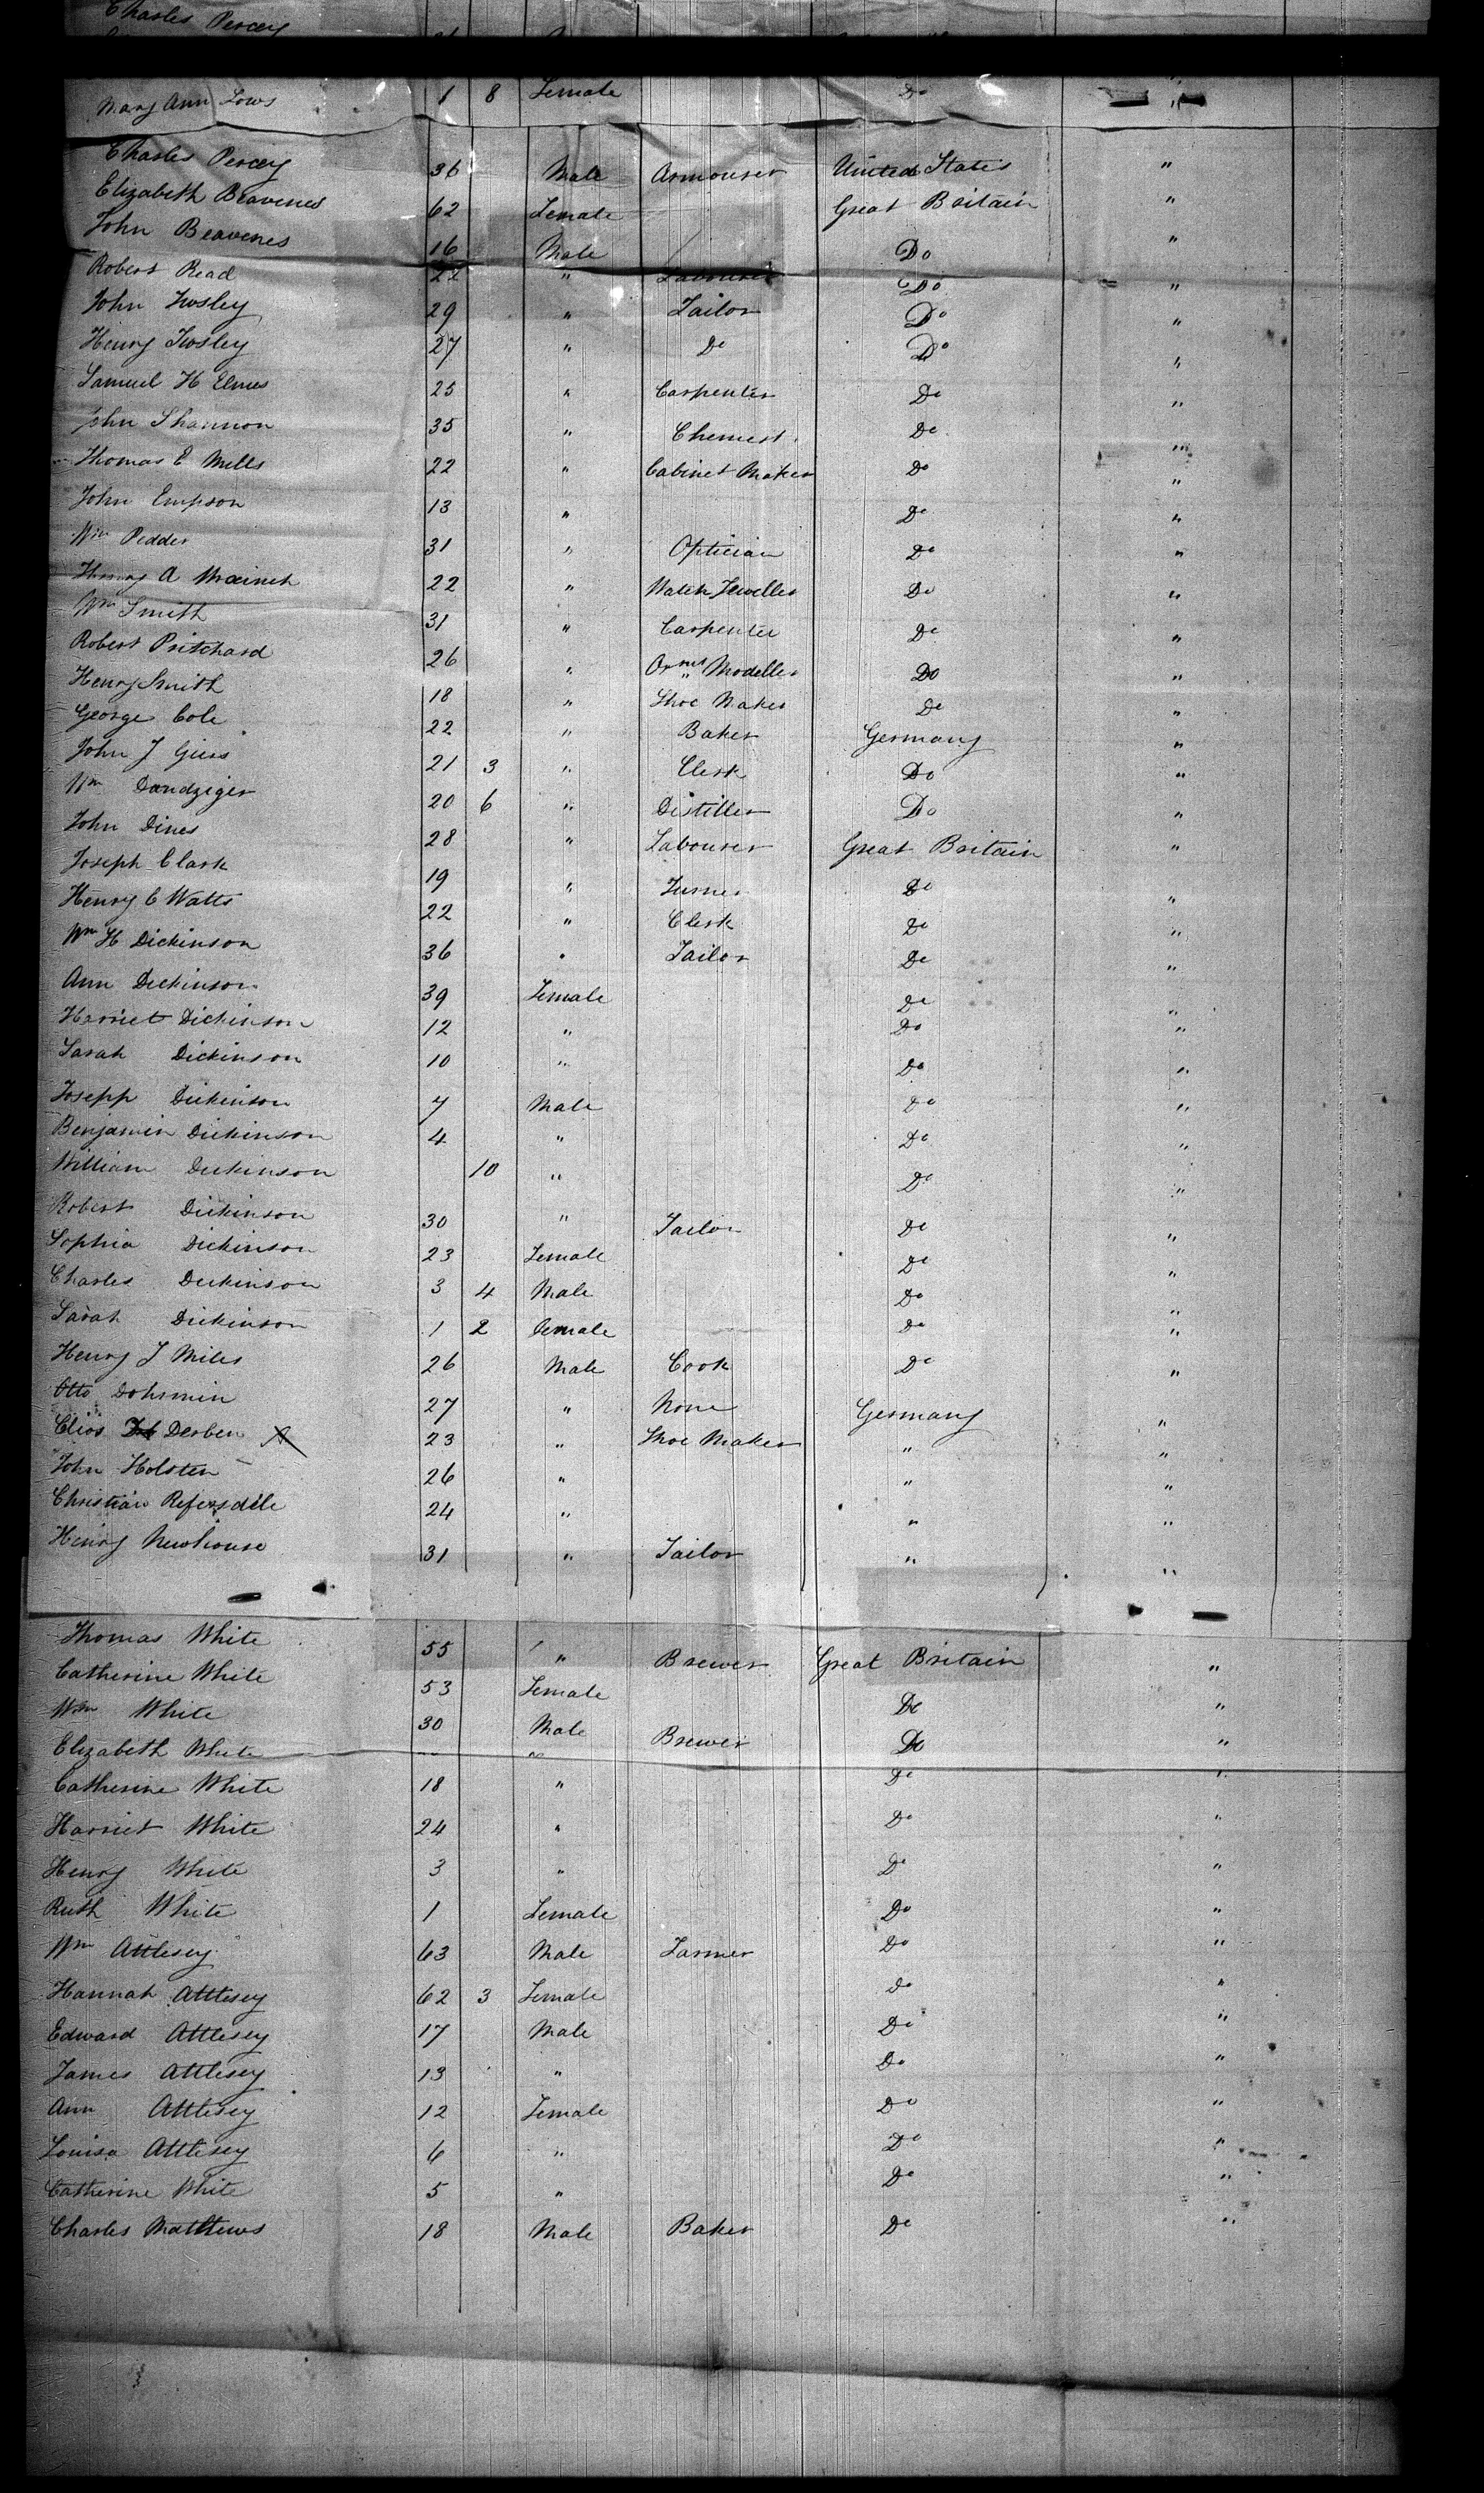 Charles Percey
Mary Ann Lows 1 8 Female Do "
Charles Percey 36 Male Armourer United States "
Elizabeth Beavenes 62 Female Great Britain "
John Beavenes 16 Male Do "
Robert Read 22 " Labourer Do "
John Twsley 29 " Tailor Do "
Henry Twsley 27 " Do Do "
Samuel H Elmes 25 " Carpenter Do "
John Shannon 35 " Chemist Do "
Thomas E Mills 22 " Cabinet Maker Do "
John Empson 13 " Do "
Wm Pedder 31 " Optician Do "
A 22 " Watch Jeweller Do "
Wm Smith 31 " Carpenter Do "
Robert Pritchard 26 " Modeller Do "
Henry Smith 18 " Shoe Maker Do "
George Cole 22 " Baker Germany "
John J Giess 21 3 " Clerk Do "
Wm Dandziger 20 6 " Distiller Do "
John Dines 28 " Labourer Great Britain "
Joseph Clark 19 " Turner Do "
Henry C Watts 22 " Clerk Do "
Wm H Dickinson 36 " Tailor Do "
Ann Dickinson 39 Female Do "
Harriet Dickinson 12 " Do "
Sarah Dickinson 10 " Do "
Josepp Dickinson 7 Male Do "
Benjamin Dickinson 4 " Do "
William Dickinson 10 " Do "
Robert Dickinson 30 " Tailor Do "
Sophia Dickinson 23 Female Do "
Charles Dickinson 3 4 Male Do "
Sarah Dickinson 1 2 Female Do "
Henry J Miles 26 Male Cook Do "
Otto Dohrmin 27 " None Germany "
Derben 23 " Shoe Maker " "
John Holsten 26 " " "
Christian 24 " " "
Henry Newhouse 31 " Tailor " "
Thomas White 55 " Brewer Great Britain "
Catherine White 53 Female Do "
Wm White 30 Male Brewer Do "
Elizabeth White " Do "
Catherine White 18 " Do "
Harriet White 24 " Do "
Henry White 3 " Do "
Ruth White 1 Female Do "
Wm Attlesey 63 Male Farmer Do "
Hannah Attlesey 62 3 Female Do "
Edward Attlesey 17 Male Do "
James Attlesey 13 " Do "
Ann Attlesey 12 Female Do "
Louisa Attlesey 6 " Do "
Catherine White 5 " Do "
Charles Matthews 18 Male Baker Do "